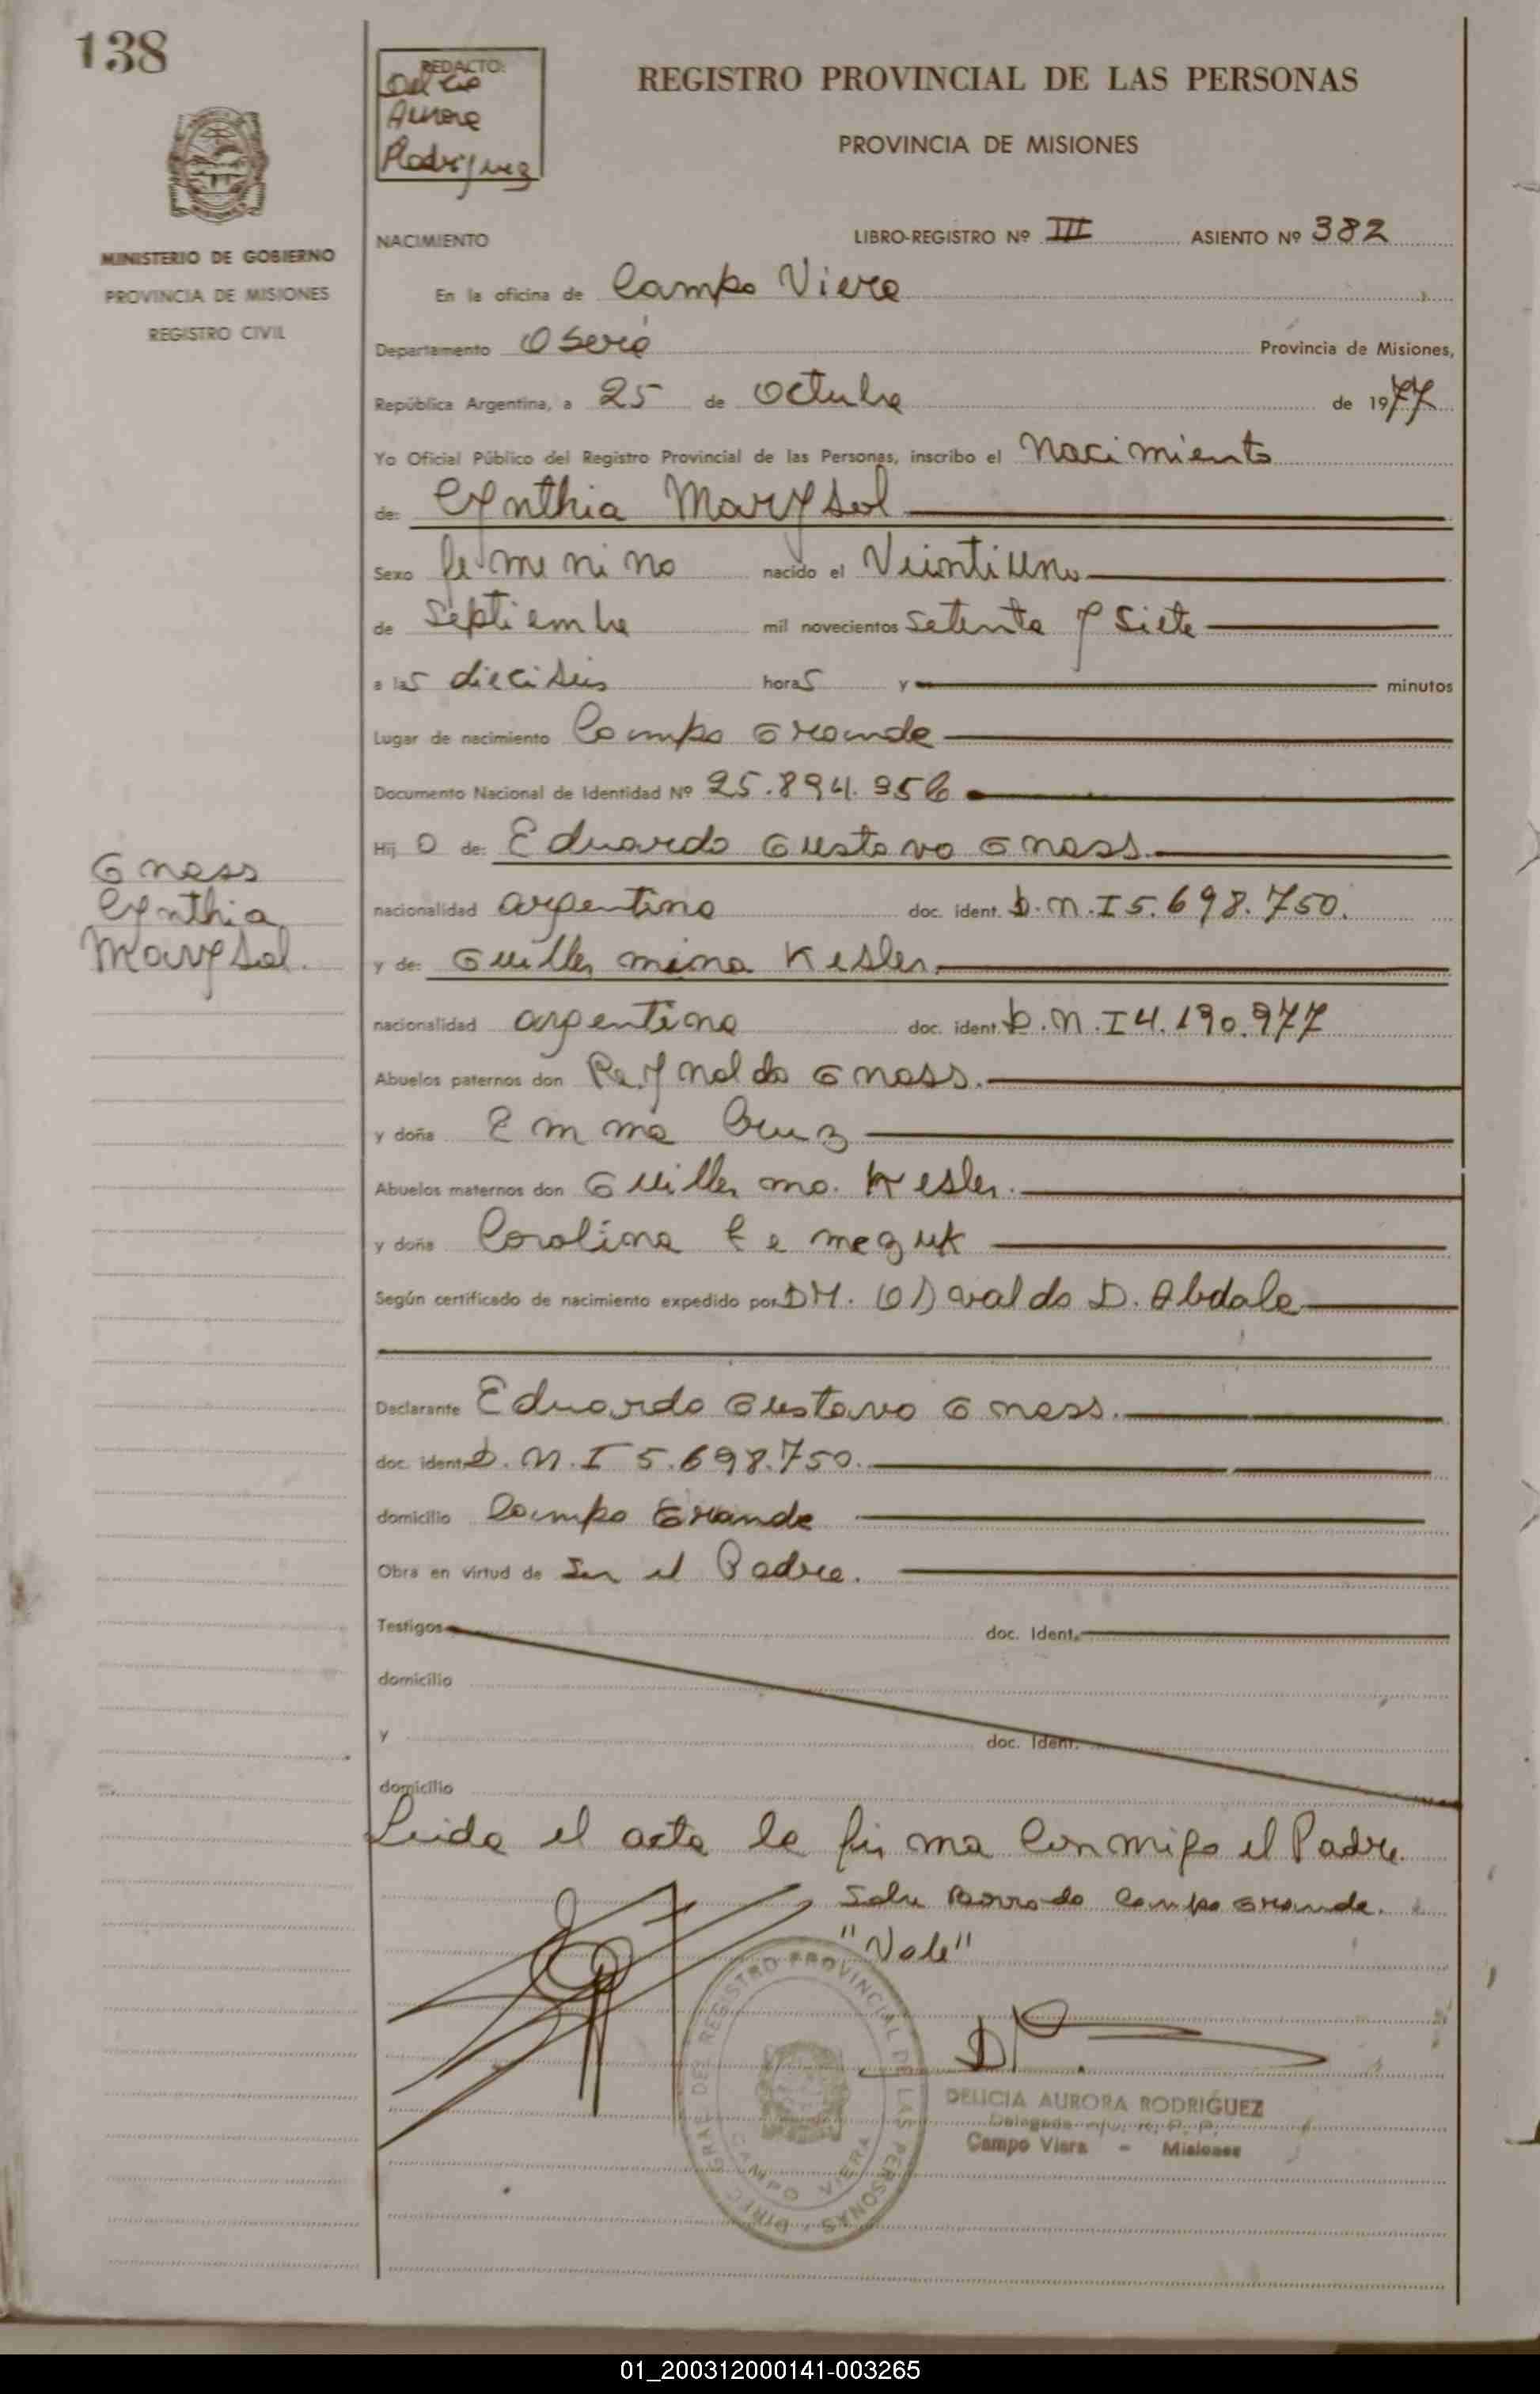 138
REDACTO:
Aurora
Rodriguez
REGISTRO PROVINCIAL DE LAS PERSONAS
PROVINCIA DE MISIONES
MINISTERIO DE GOBIERNO
PROVINCIA DE MISIONES
REGISTRO CIVIL
NACIMIENTO LIBRO-REGISTRO Nº III ASIENTO Nº 382
En la oficina de Campo Viera
Departamento Oberá Provincia de Misiones,
República Argentina, a 25 de Octubre de 1977
Yo Oficial Público del Registro Provincial de las Personas, inscribo el Nacimiento
de: Cynthia Marysol
Sexo femenino nacido el Veintiuno
de Septiembre mil novecientos setenta y siete
a las dieciseis horas y minutos
Lugar de nacimiento Campo Grande
Documento Nacional de Identidad Nº 25.894.956
Hij o de: Eduardo Gustavo Gnass.
Gnass
Cynthia
Marysol.
nacionalidad argentino doc. ident. D.N.I 5.698.750.
y de: Guillermina Kesler.
nacionalidad argentina doc. ident. D.N.I 4.190.977
Abuelos paternos don Reynaldo Gnass.
y doña Emma Cruz
Abuelos maternos don Guillermo. Kesler.
y doña Carolina
Según certificado de nacimiento expedido por DM. Osvaldo D. Abdala
Declarante Eduardo Gustavo Gnass.
doc. ident. D.N.I 5.698.750.
domicilio Campo Grande
Obra en virtud de Ser el Padre.
Testigos doc. Ident.
domicilio
y doc. Ident.
domicilio
Leida el acta la firma Conmigo el Padre.
Sobre Borrado Campo Grande.
"Vale"
DIREC. GRAL DEL REGISTRO PROVINCIAL DE LAS PERSONAS
CAMPO VIERA
DELICIA AURORA RODRIGUEZ
Delegada
Campo Viera - Misiones
01_200312000141-003265